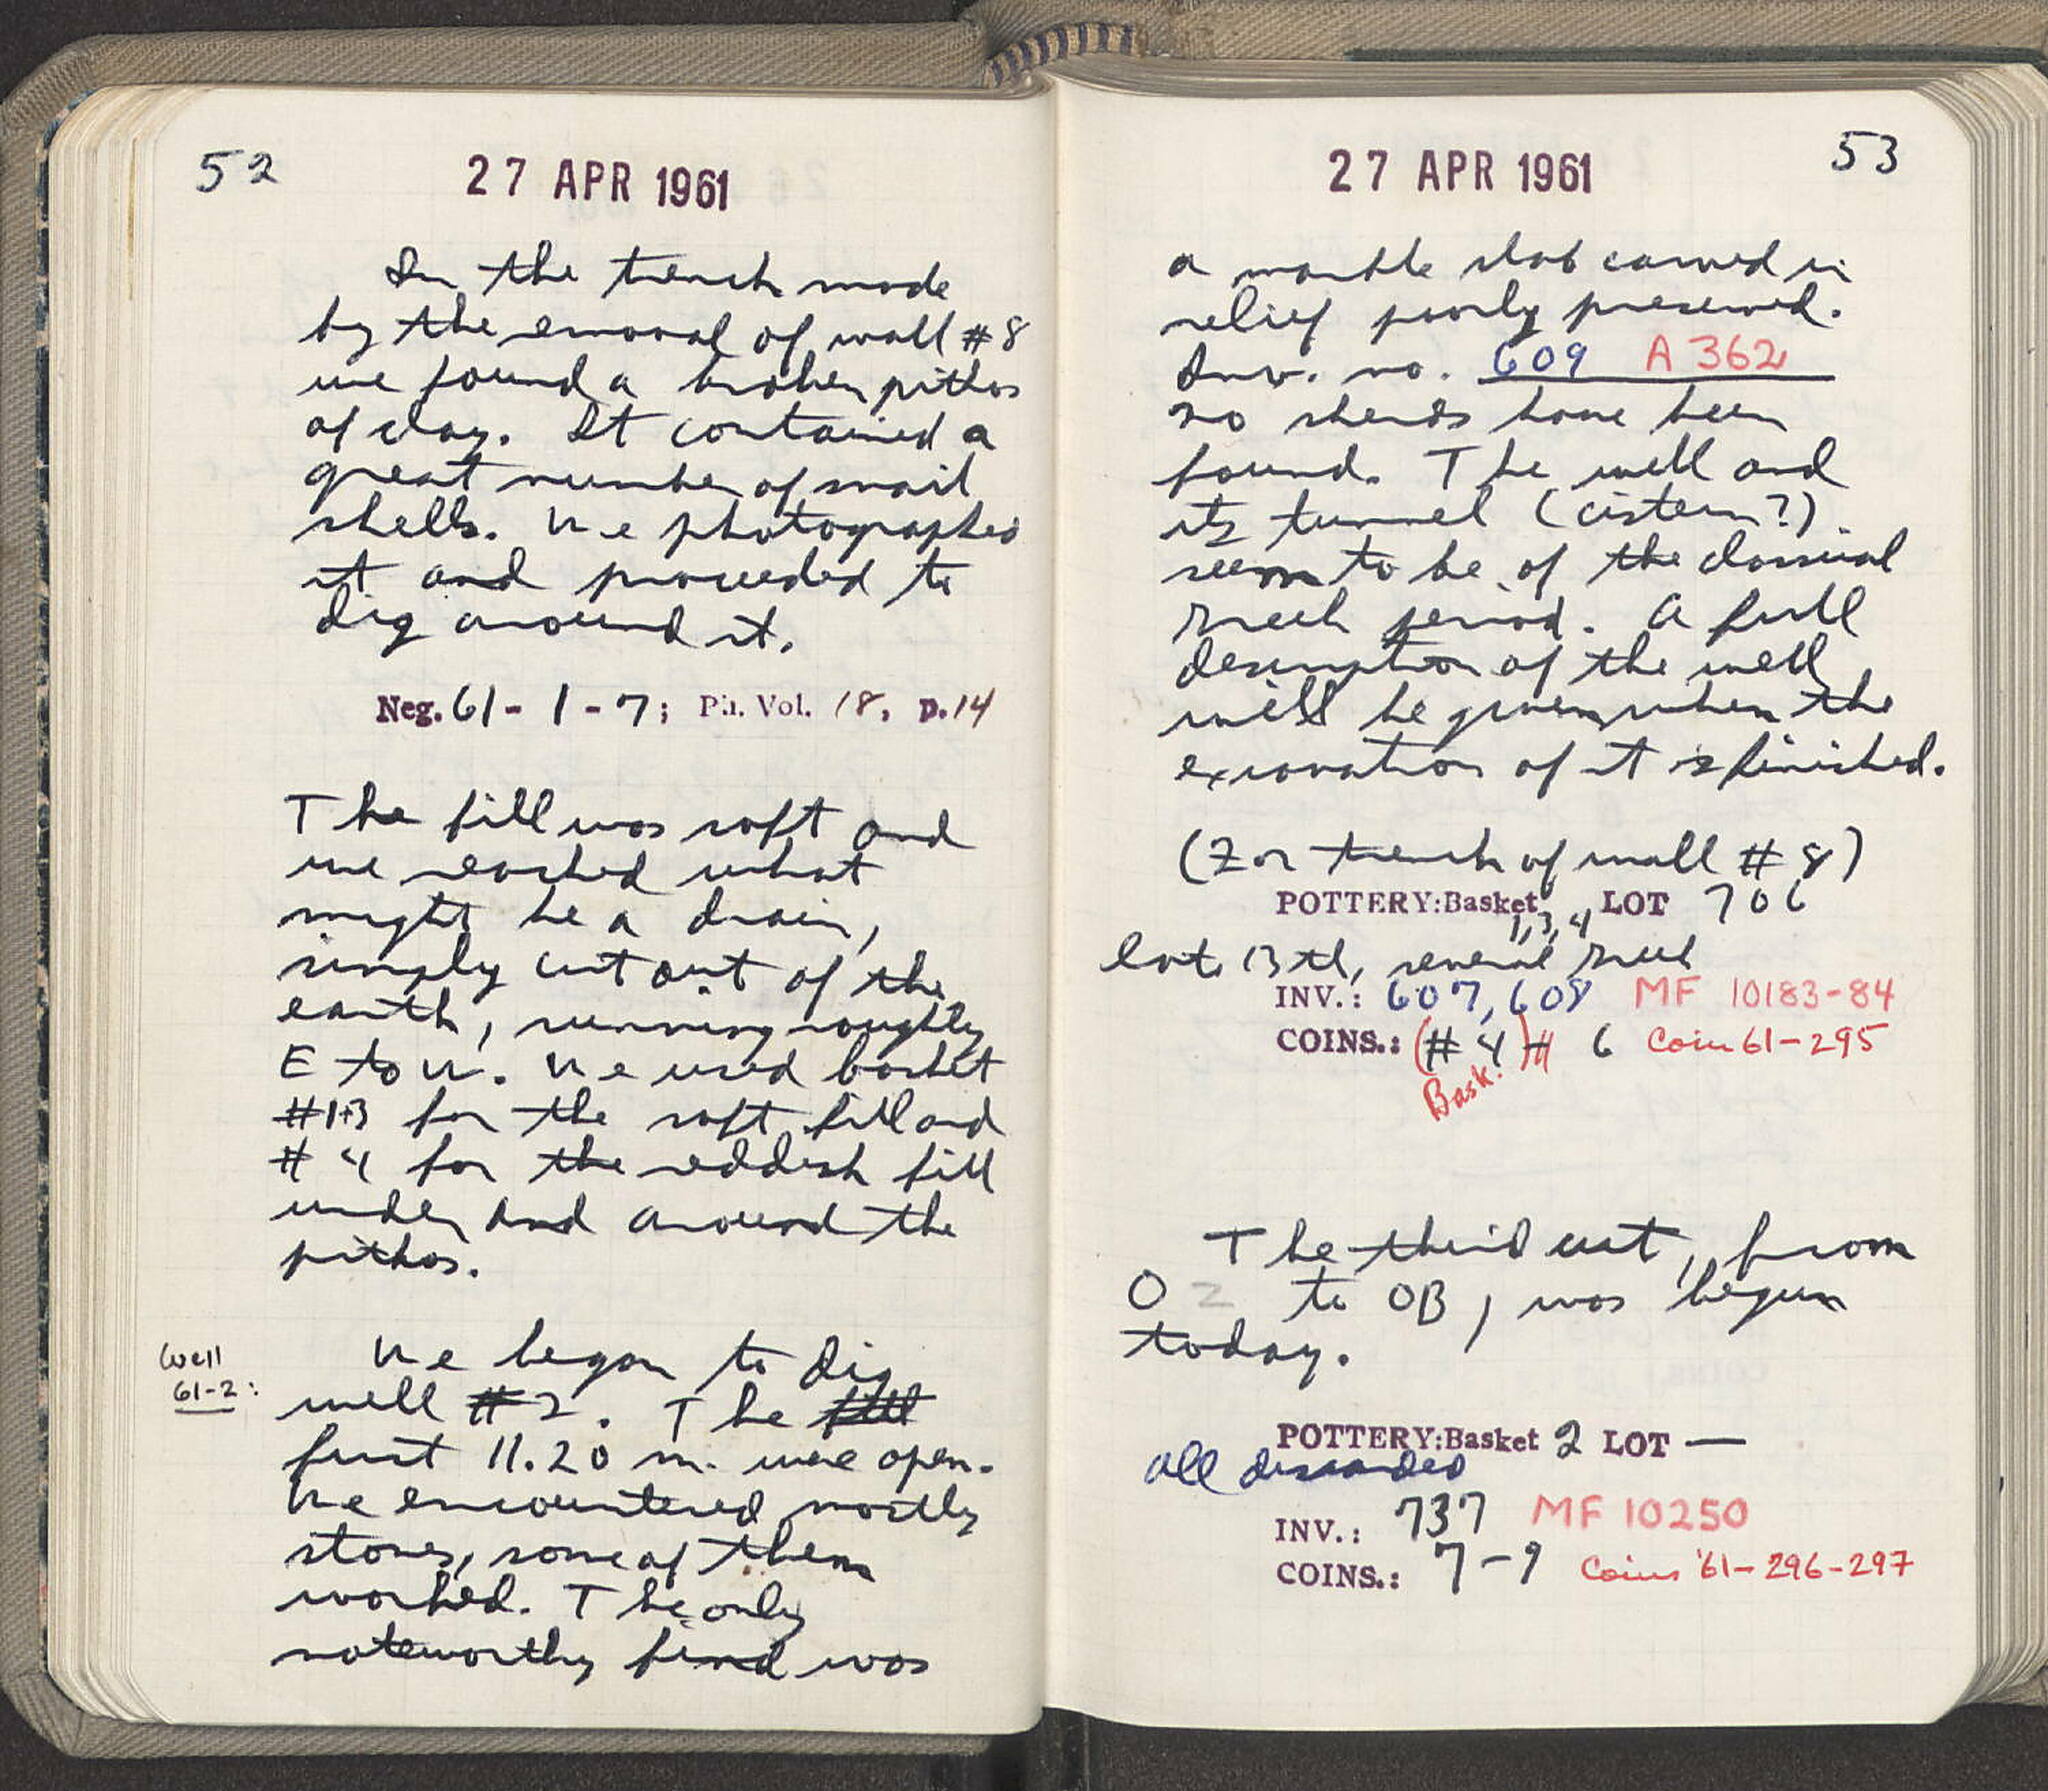 52
27 APR 1961
In the trench made
by the emoval of wall #8
we found a broken pithos
of clay. It contained a
great number of snail
shells. We photographed
it and proceeded to
dig around it.
Neg. 61-1-7; Ph. Vol. 18, p. 14
The fill was soft and
we reached what
might be a drain,
simply cut out of the
earth, running roughly
E to W. We used basket
#1+3 for the soft fill and
#4 for the reddish fill
under and around the
pithos.
Well
61-2:
We began to dig
well #2. The fill
first 11.20 m. were open.
We encountered mostly
stones, some of them
worked. The only
noteworthy find was
53
27 APR 1961
a marble slab carved in
relief poorly preserved.
Inv. no. 609 A 362
No sherds have been
found. The well and
its tunnel (cistern?)
seem to be of the classical
Greek period. A full
description of the well
will be given when the
excavation of it is finished.
(For trench of wall #8)
POTTERY: Basket 1,3,4 LOT 706
late 13th, several Greek
INV.: 607, 608 MF 10183-84
COINS.: (#4) # 6 Coin 61-295
Bask.
The third cut, from
O Z to OB, was begun
today.
POTTERY: Basket 2 LOT —
all discarded
INV.: 737 MF 10250
COINS.: 7-9 Coins '61-296-297